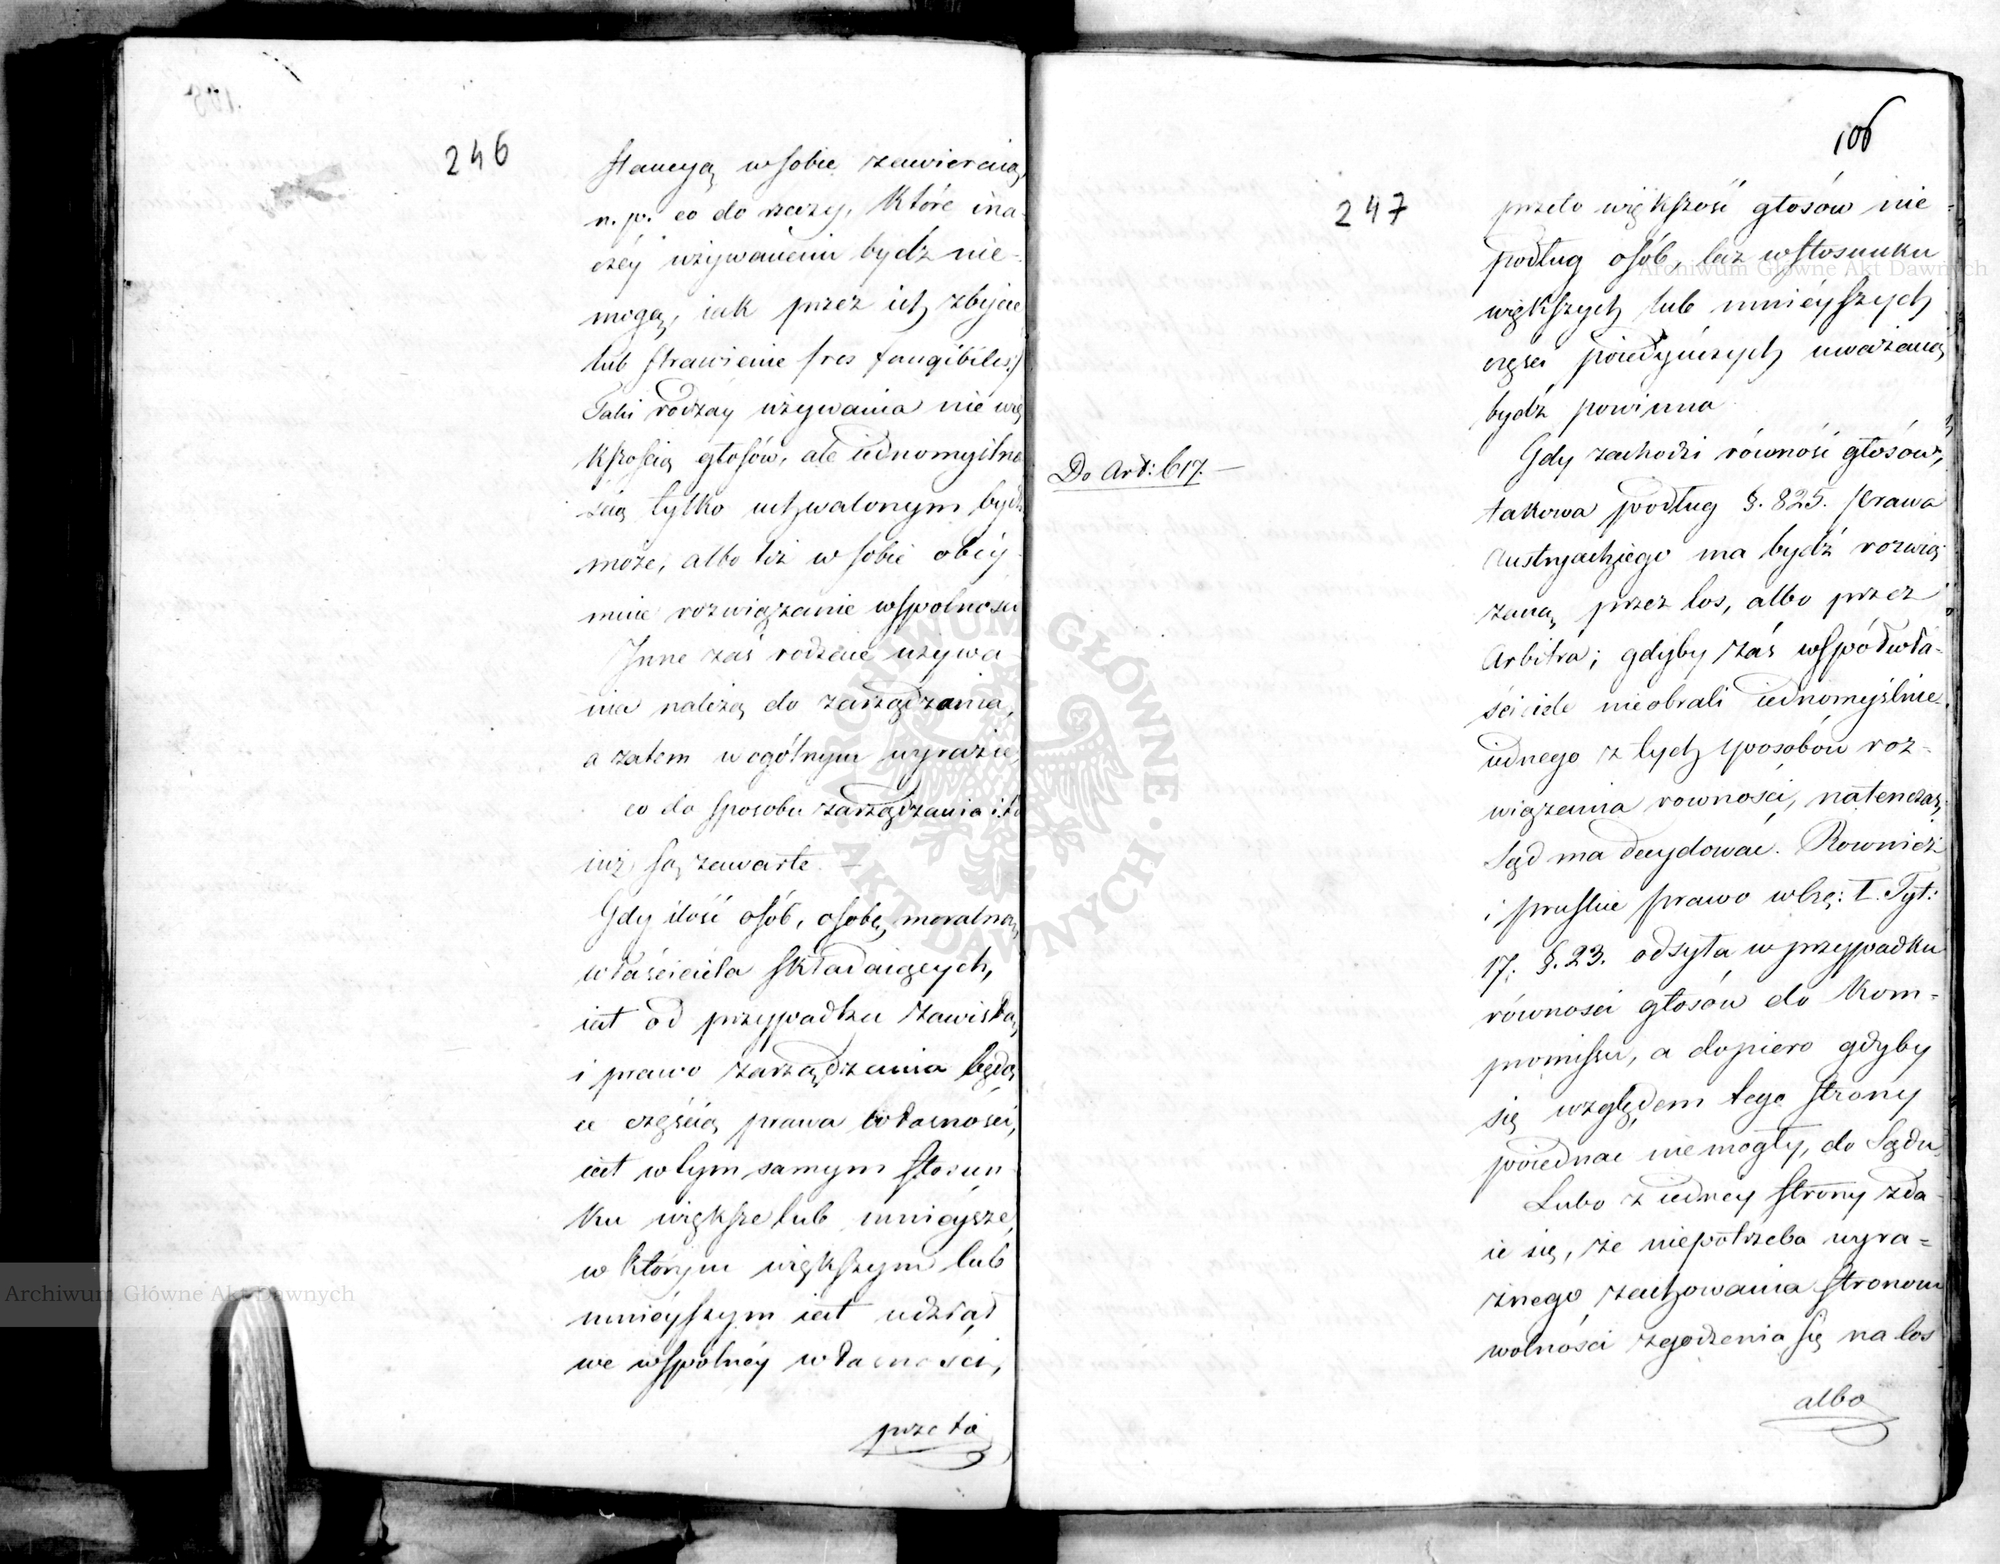 246
stancyą w sobie zawieraią,
n. p. co do rzeczy, które ina-
czéy używanemi bydź nie-
mogą, iak przez ich zbycie,
lub strawienie (res fungibiles.)
Taki rodzay używania nie wię
kszością głosów, ale iednomyślno
ścią tylko uchwalonym bydź
może, albo też w sobie obéy-
muie rozwiązanie wspolności
Inne zaś rodzaie używa-
nia należą do zarządzania,
a zatem w ogólnym wyrazie,
co do sposobu zarządzania i.t.d
iuż są zawarte. —
Gdy ilość osób, osobę moralną
właściciela składaiących,
iest od przypadku zawisłą,
i prawo zarządzania będą
c częścią prawa własności,
iest w tym samym stosun
ku większe lub mniéysze,
w którym większym lub
mniéyszym iest udział
we wspólnéy własności,
przeto
106
247
przeto większość głosów nie-
podług osób, lecz w stosunku
większych lub mniéyszych
części poiedyńczych uważaną
bydź powinna
Do Art: 617. —
Gdy zachodzi równość głosów,
takowa podług §. 825. prawa
Austryackiego ma bydź rozwią-
zaną przez los, albo przez
Arbitra; gdyby zaś współwła-
ściciele nieobrali iednomyślnie
iednego z tych sposobów roz-
wiązania rowności, natenczas
Sąd ma decydować. Rownież
i pruskie prawo w Czę: I. Tyt:
17: §. 23. odsyła w przypadku
równości głosów do Kom-
promissu, a dopiero gdyby
się względem tego strony
poiednać niemogły, do Sądu.
Lubo z iednéy strony zda-
ie się, że niepotrzeba wyra-
źnego zachowania stronom
wolności zgodzenia się na los
albo
Archiwum Główne Akt Dawnych
Archiwum Główne Akt Dawnych
ARCHIWUM GŁÓWNE · AKT DAWNYCH ·